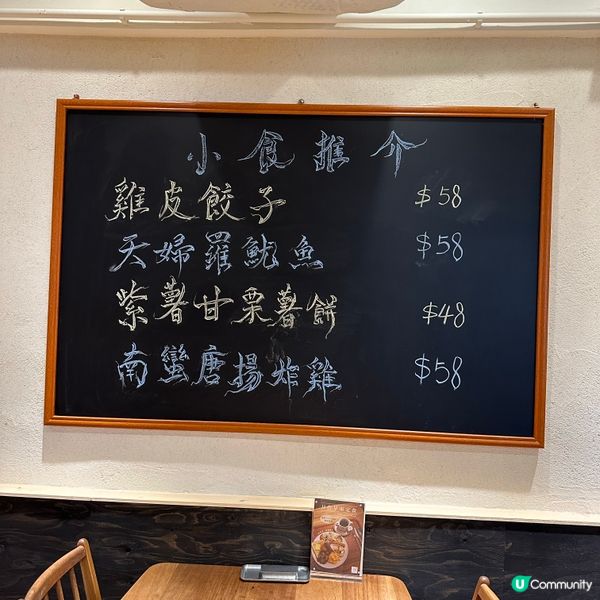 小食推介
雞皮餃子 $58
天婦羅魷魚 $58
紫薯甘栗薯餅 $48
南蠻唐揚炸雞 $58
U Community